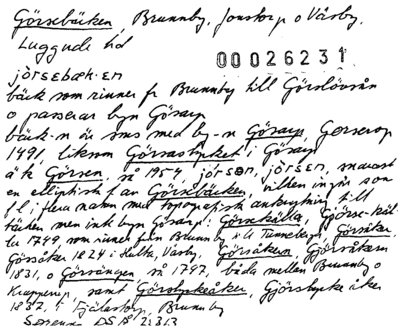 Görsebäcken, Brunnby, Jonstorp o Väsby,
Luggude hd
00026231
jörsebæk·en
bäck som rinner fr Brunnby till Görslövsån
o passerar byn Görarp
bäck·n är sms med by-n Görarp, Gerserop
1491, liksom Görsastycket i Görarp
ä k Görsen, så 1954, jörson, jörsen, snarast
en elliptisk f av Görsebäcken, vilken ingår som
f l i flera namn med topografisk anknytning till
bäcken men ink byn Görarp: Görsekälla, Gjörse-käl-
la 1749, som rinner från Brunnby till Tunneberga, Görsåker,
Görsåker 1824 i Väsby, Görsåkern, Gjörsåkern
1831, o Görsvången, så 1797, båda mellan Brunnby o
Krapperup samt Görstyckeåker, Gjörstycke åker
1837, i Fjälastorp, Brunnby
DSÅ 2:313